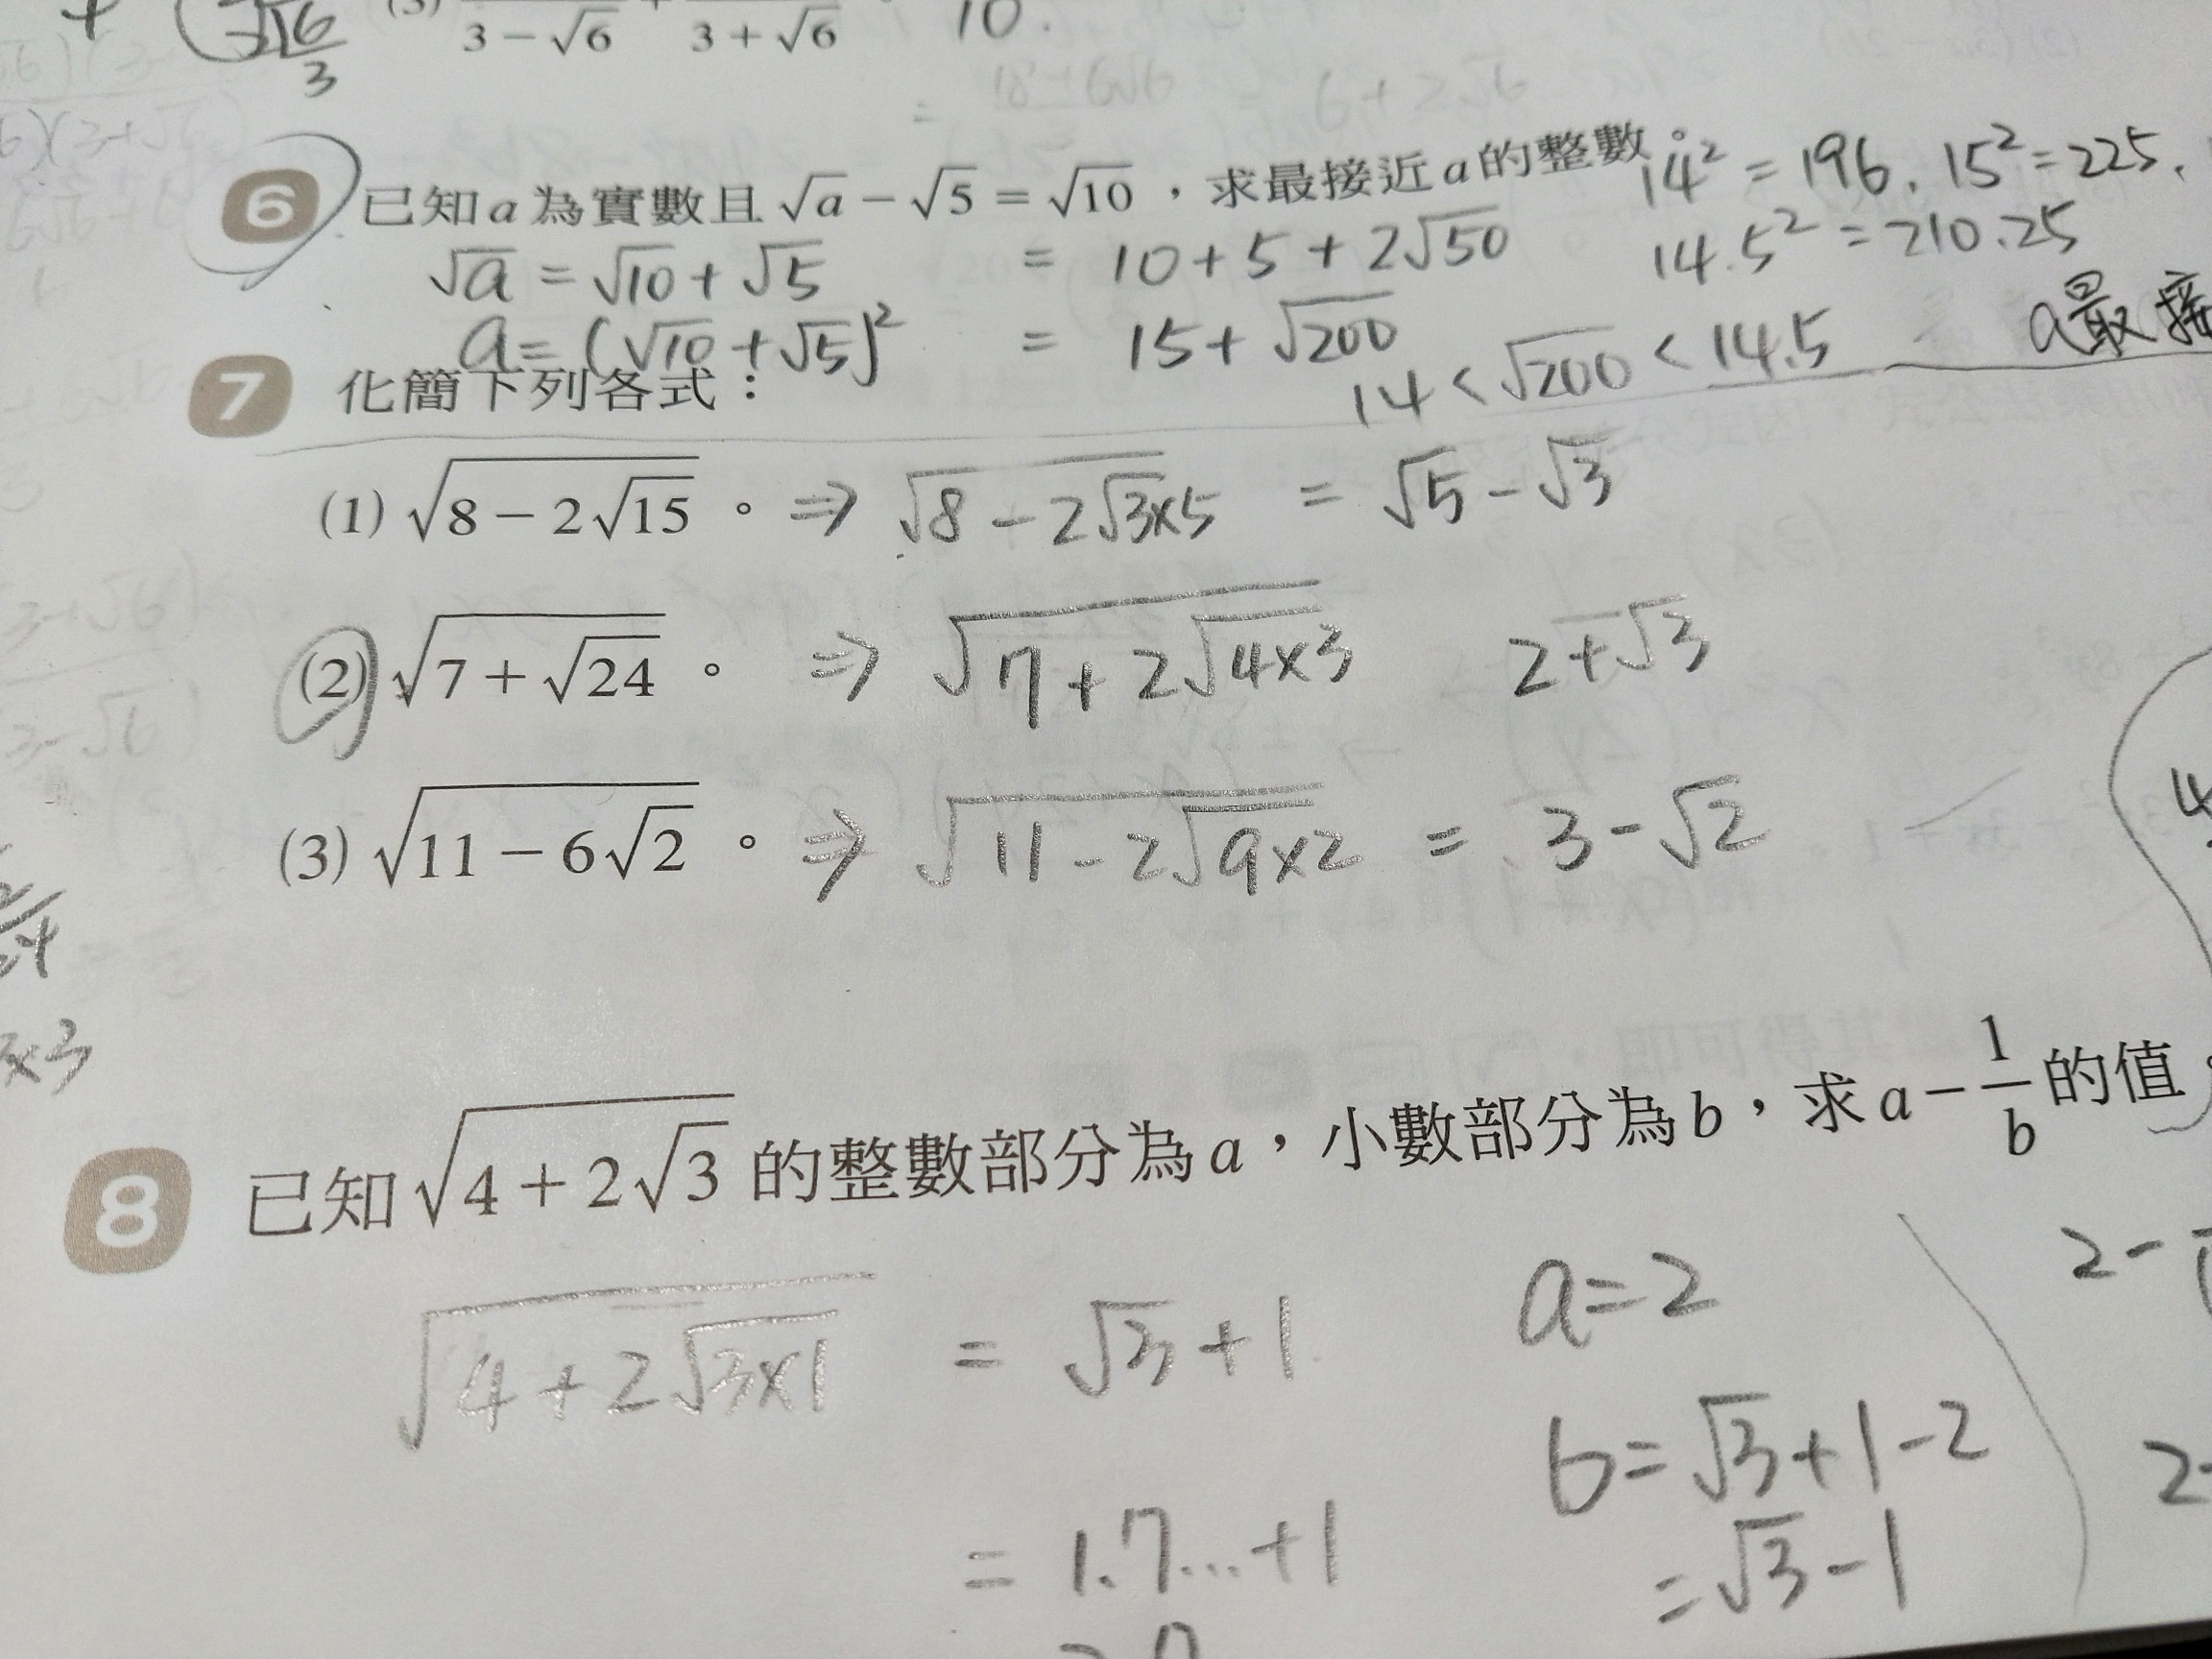 (3) 3 − √6 3 + √6 10.
√6
3
6 已知 a 為實數且 √a − √5 = √10 ，求最接近 a 的整數。 14² = 196. 15² = 225.
√a = √10 + √5 = 10 + 5 + 2√50 14.5² = 210.25
a = (√10 + √5)² = 15 + √200 a最接
14 < √200 < 14.5
7 化簡下列各式：
(1) √(8 − 2√15) 。 ⇒ √8 − 2√3×5 = √5 − √3
(2) √(7 + √24) 。 ⇒ √(7 + 2√(4×3)) 2 + √3
(3) √(11 − 6√2) 。 ⇒ √(11 − 2√(9×2)) = 3 − √2
×3
8 已知 √(4 + 2√3) 的整數部分為 a，小數部分為 b，求 a − 1/b 的值
√(4 + 2√(3×1)) = √3 + 1 a = 2 2 −
b = √3 + 1 − 2
= 1.7... + 1 = √3 − 1